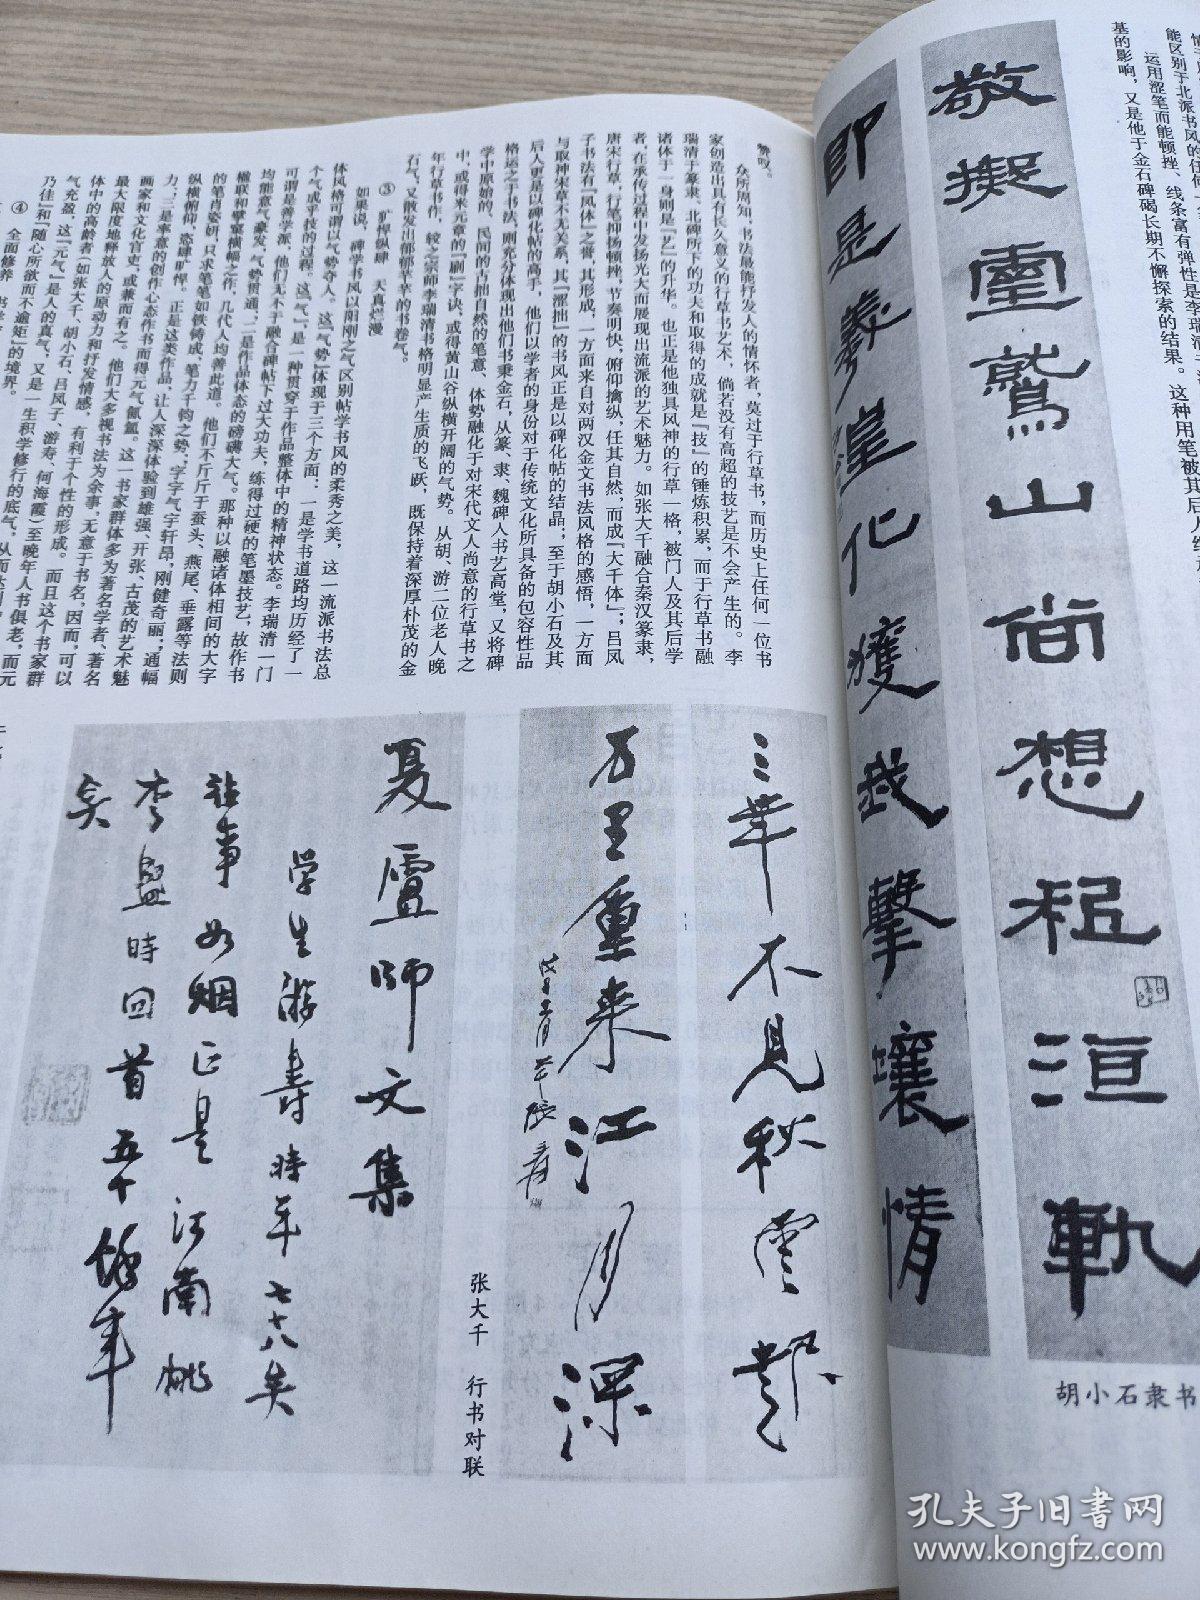 能区别于北派书风的任何一
运用涩笔而能顿挫、线条富有弹性是李瑞清
基的影响，又是他于金石碑碣长期不懈探索的结果。这种用笔被其后人
敬擬靈鷲山尚想祗洹軌
即是羲皇化獲我擊壤情
胡小石隶书
赞叹。
众所周知，书法最能抒发人的情怀者，莫过于行草书，而历史上任何一位书
家创造出具有长久意义的行草书艺术，倘若没有高超的技艺是不会产生的。李
瑞清于篆隶、北碑所下的功夫和取得的成就是“技”的锤炼积累，而于行草书融
诸体于一身则是“艺”的升华。也正是他独具风神的行草一格，被门人及其后学
者，在承传过程中发扬光大而展现出流派的艺术魅力。如张大千融合秦汉篆隶，
唐宋行草，行笔抑扬顿挫，节奏明快，俯仰擒纵，任其自然，而成“大千体”；吕凤
子书法有“凤体”之誉，其形成，一方面来自对两汉金文书法风格的感悟，一方面
与取神宋草不无关系，其“涩拙”的书风正是以碑化帖的结晶；至于胡小石及其
后人更是以碑化帖的高手，他们以学者的身份对于传统文化所具备的包容性品
格运之于书法，则充分体现出他们书秉金石，从篆、隶、魏碑入书艺高堂，又将碑
学中质朴的、民间的古拙自然的笔意、体势融化于对宋代文人尚意的行草书之
中，或得米芾的“刷”字诀，或得黄山谷纵横开阔的气势。从胡、游二位老人晚
年行草书作，较之宗师李瑞清书格明显产生质的飞跃，既保持着深厚朴茂的金
石气，又散发出郁郁芊芊的书卷气。
③ 犷悍纵肆 天真烂漫
如果说，碑学书风以阳刚之气区别帖学书风的柔秀之美，这一流派书法总
体风格可谓以气势夺人。这“气势”体现于三个方面：一是学书道路均历经了一
个气成乎技的过程。这“气”，是一种贯穿于作品整体中的精神状态。李瑞清一门
可谓是善学派，他们无不于融合碑帖下过大功夫，练得过硬的笔墨技艺，故作书
均能意气豪发，气势贯通。二是作品体态的磅礴大气。那种以融诸体相间的大字
楹联和擘窠横幅之作，几代人均善此道。他们不斤斤于蚕头、燕尾、垂露等法则
的笔肖姿妍，只求笔笔如铁铸成，笔力千钧之势，字字气宇轩昂，刚健奇丽；通幅
纵横俯仰，恣肆旷悍。正是这类作品，让人深深体验到雄强、开张、古茂的艺术魅
力；三是率意的创作心态作书而得元气氤氲。这一书家群体多为著名学者、著名
画家和文化官吏，或兼而有之。他们大多视书法为余事，无意于书名，因而，可以
最大限度地释放人的原动力和抒发情感，有利于个性的形成。而且这个书家群
体中的高龄者（如张大千、胡小石、吕凤子、游寿、何海霞）至晚年人书俱老，而元
气充盈，这“元气”是人的真气，又是一生积学修行的底气，从而达到
乃佳”和“随心所欲而不逾矩”的境界。
④ 全面修养
三年不見秋雲散
万里重来江月深
张大千 行书对联
夏廬師文集
学生游壽時年七十八矣
往事如烟正是江南桃
李盛時回首五十餘年
矣
孔夫子旧书网
www.kongfz.com